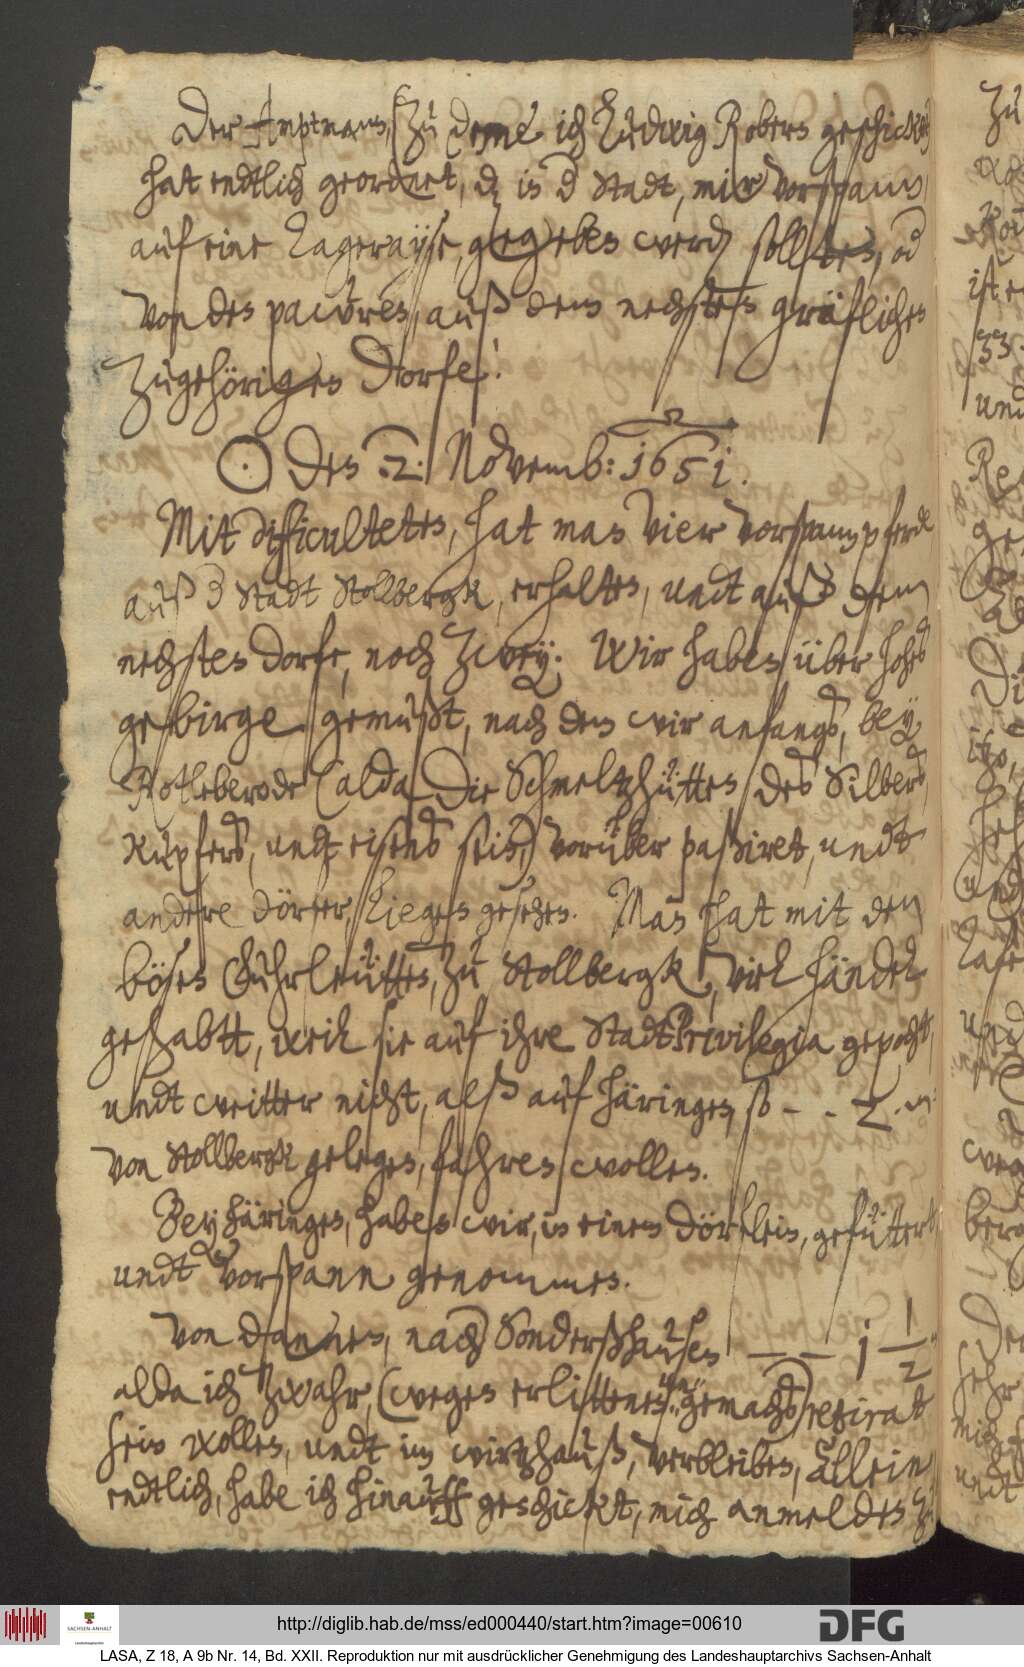 Der Amptmann, (zu deme ich Ludwig Röbern geschickt)
hat endtlich geordnet, dz in d Stadt, mir Vorspann,
auf eine Tagerayse, gegeben werden sollten, od
von den pawren, auß dem nechsten gräflichen
Zugehörigen Dorfe!
☉ den .2. Novemb: 1651.
Mit difficulteten, hat man vier Vorspannpferde
auß d Stadt Stollbergk, erhalten, undt auß dem
nechsten dorfe, noch Zwey. Wir haben über hohes
gebirge gemußt, nach dem wir anfangs, bey
Rotleberode (alda die Schmeltzhütten des Silbers
Kupfers, undt eisens sein,) vorüber paßiret, undt
andere dörfer, liegen gesehen. Man hat mit den
bösen Fuhrleütten, zu Stollbergk, viel händel
gehabtt, weil sie auf ihre StadtPrivilegia gepocht,
undt weitter nicht, alß auf häringen, so - - 2 m:
von Stollbergk gelegen, fahren wollen.
Bey häringen, haben wir, in einem dörflein, gefüttert,
undt Vorspann genommen.
Von dannen, nach Sondershausen — — 1 1/2
alda ich Zwahr, (wegen erlittenes ungemachs) retirat
sein wollen, undt im wirtzhauß, verbleiben, Allein
endtlich, habe ich hinauff geschickt, mich anmelden zu
http://diglib.hab.de/mss/ed000440/start.htm?image=00610
DFG
SACHSEN-ANHALT
LASA, Z 18, A 9b Nr. 14, Bd. XXII. Reproduktion nur mit ausdrücklicher Genehmigung des Landeshauptarchivs Sachsen-Anhalt